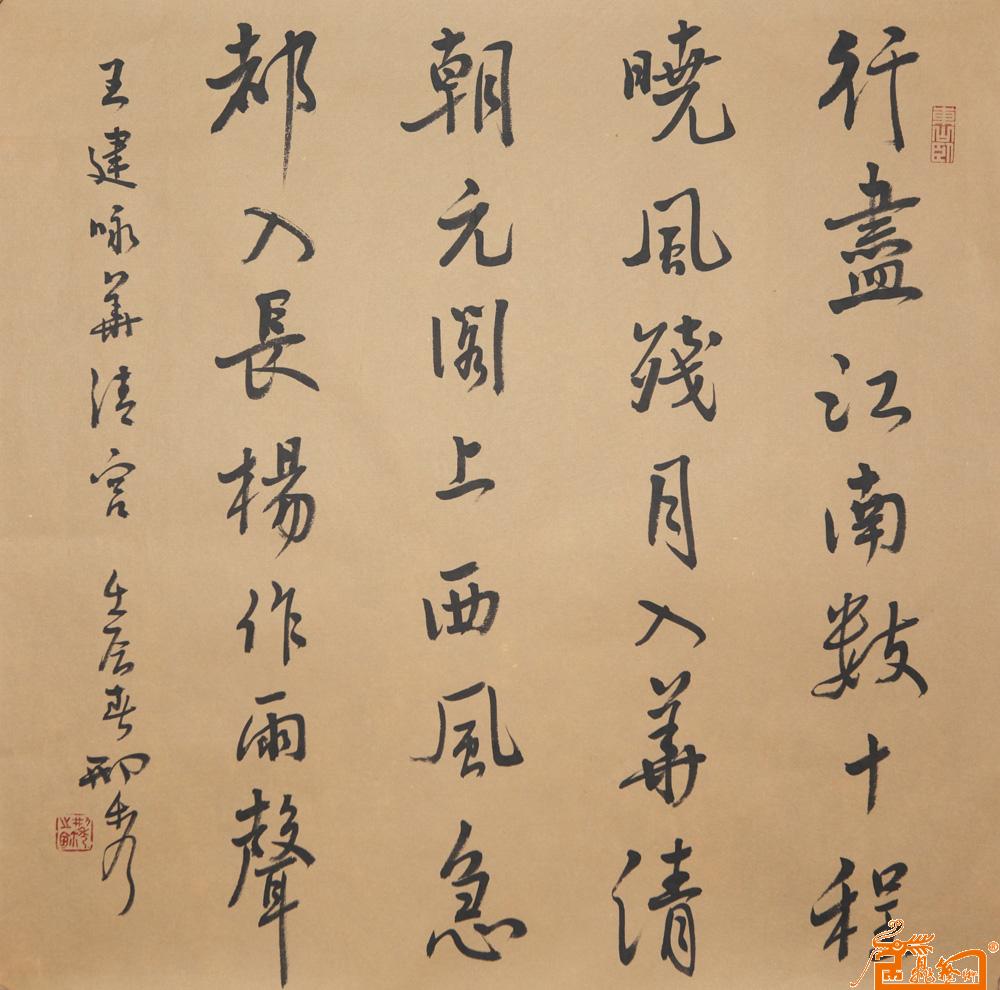 行盡江南數十程
曉風殘月入華清
朝元閣上西風急
都入長楊作雨聲
王建咏華清宮 壬辰春 邢秀